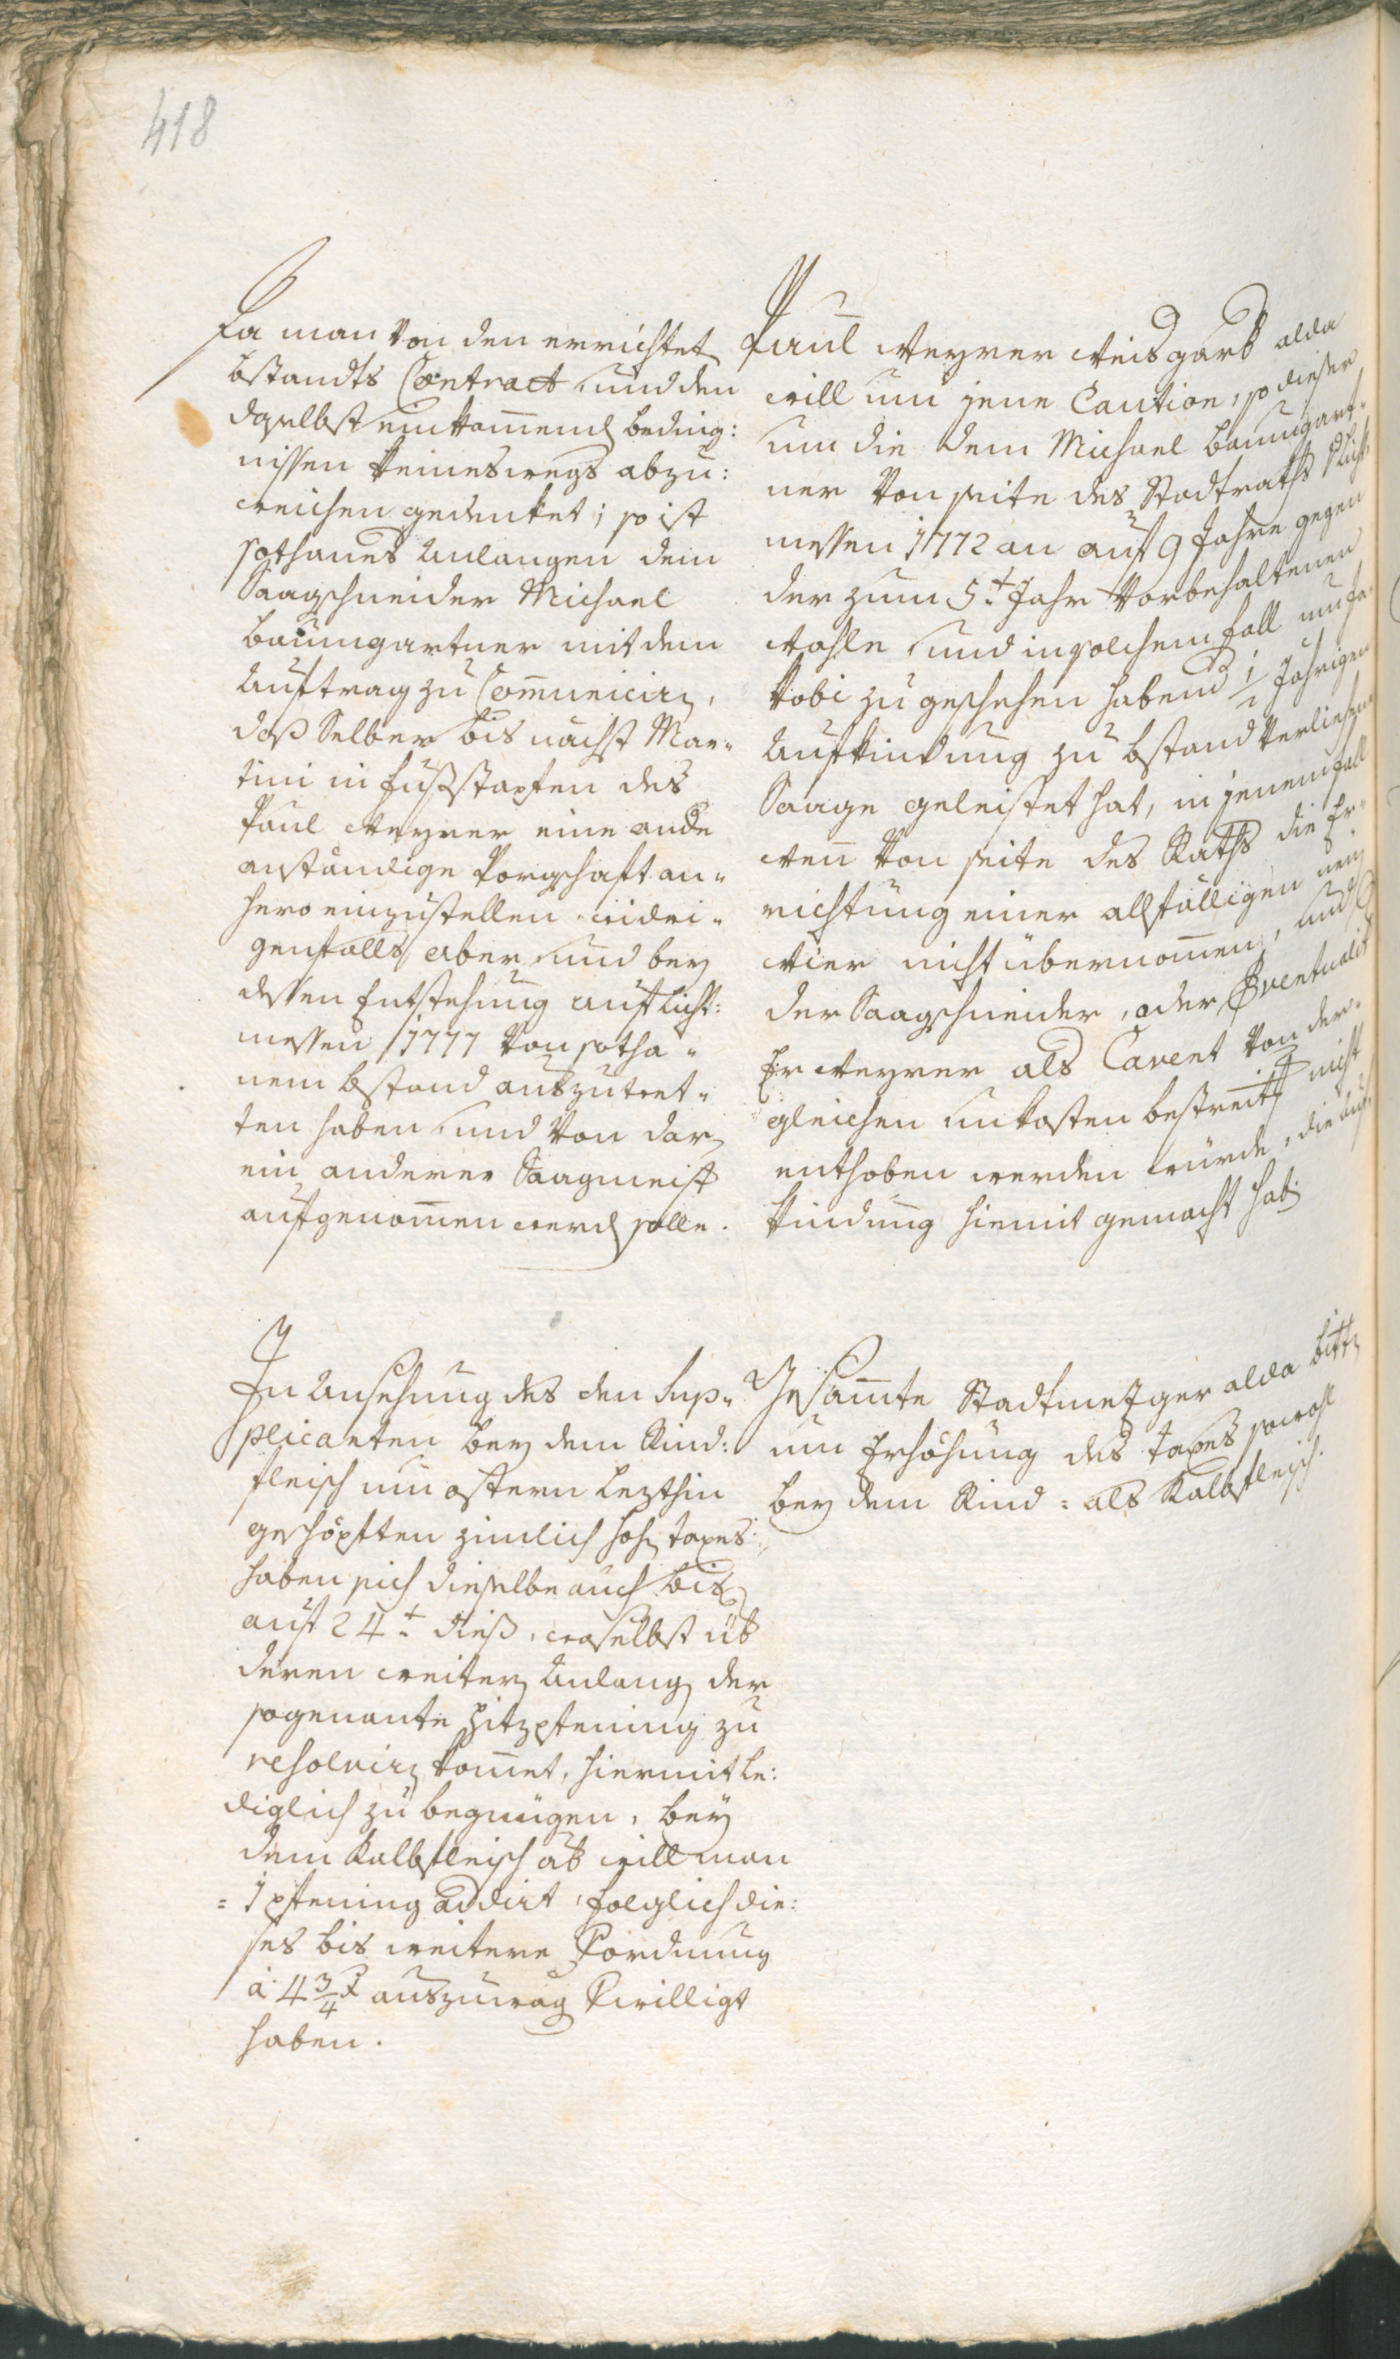 418
Da man von den errichtet
bstandts Contract und den
daselbst einkom̄end beding:
nissen keineswegs abzu:
weichen gedenket; so ist
sothanes Anlangen dem
Saagschneider Michael
Baumgartner mit dem
Auftrag zu Com̄unicirn,
daß Selber bis nächst Mar„
tini in fußstapfen des
Paul Weyrer eine ande
anständige Borgschaft an„
hero einzustellen, widri„
genfalls aber und bey
dessen Entstehung auf licht:
messen 1777 von sotha„
nem bstand auszutret„
ten haben und von dar
ein anderer Saagmeist
aufgenom̄en werd solle.
Paul Weyrer Weisgarb alda
will um jene Caution, so dieser
um die dem Michael Baumgart„
ner von seite des Stadtraths Licht
messen 1772 an auf 9 Jahre gegen
der zum 5.t Jahr vorbehaltenen
wahle und in solchem fall
vobi zu geschehen habend 1/2 Jährigen
Aufkindung zu bstand verliehen
Saage geleistet hat, in jenem fall
wen̄ von seite des Raths die Er„
richtung einer allfälligen neu
Wier nicht übernom̄en, und
der Saagschneider, oder Eventualit
Er Weyrer als Cavent von der„
gleichen Unkosten bestreitt nicht
enthoben werden würde, die Auf„
kindung hiemit gemacht hab
In Ansehung des den Sup„
plicanten bey dem Rind:
fleisch um ostern lezthin
geschöpften zimlich hoh taxes
haben sich dieselbe auch bis
auf 24.t dieß, woselbst üb
deren weitern Anlang der
sogenante Hitzpfening zu
resolvirn kom̄et, hiermit le:
diglich zu begnügen, bey
dem Kalbfleisch ab will man
1 pfening addirt, folglich die:
ses bis weitere Verordnung
à 4 3/4 x auszuwäg bewilligt
haben.
Gesam̄te Stadtmetzger alda bittn
um Erhöhung des taxes sowohl
bey dem Rind: als Kalbfleisch.